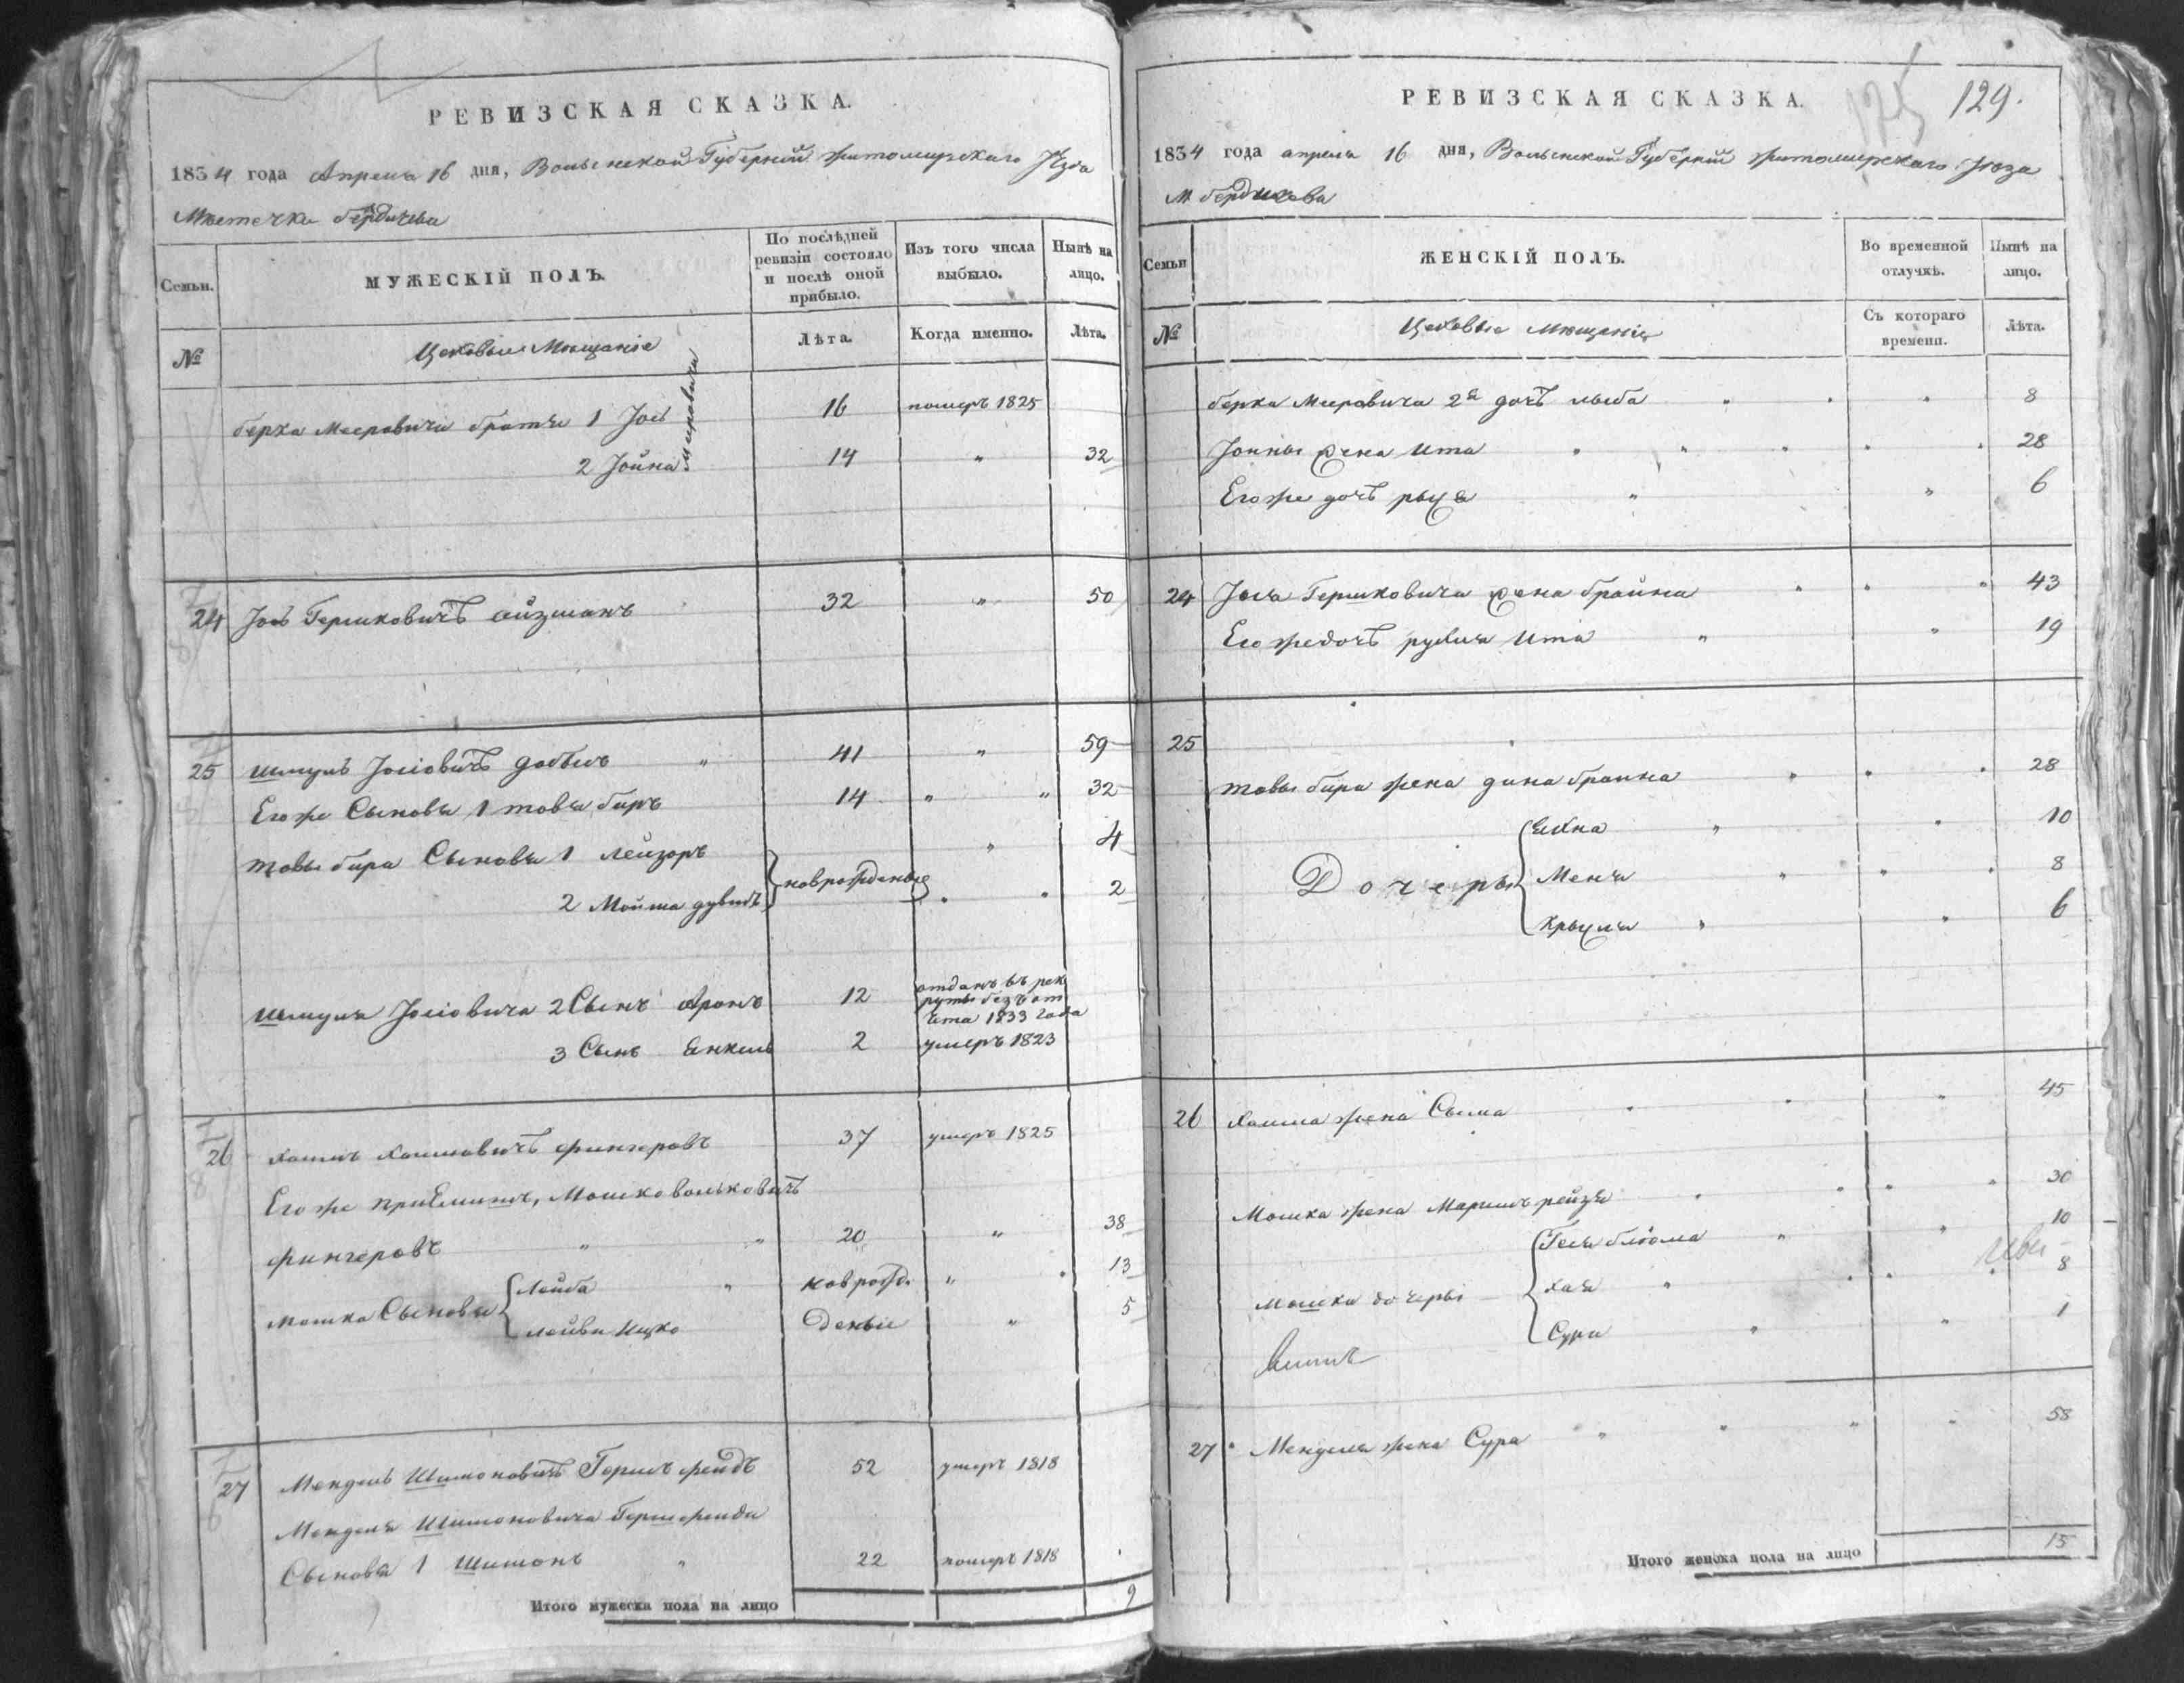 РЕВИЗСКАЯ СКАЗКА.
1834 года Апреля 16 дня, Волынской Губернии Житомирскаго
Местечка бердичева
Семьи. МУЖЕСКІЙ ПОЛЪ. По послѣдней ревизіи состояло и послѣ оной прибыло. Изъ того числа выбыло. Нынѣ на лицо.
№ Цеховые Мещание Лѣта. Когда именно. Лѣта.
берка Меровича братья 1 Иось 16 померъ 1825
2 Іойна Мировичи 14 " 32
24 Іось Гершковичъ айзманъ 32 " 50
25 шмуль Іосіовичъ " 41 " 59
Егоже Сыновья 1 товья биръ 14 " " 32
товьи бира Сыновья 1 лейзоръ " 4
2 Мойша дувидъ новорожденые " " 2
шмуля Іосіовича 2 Сынъ Аронъ 12 отданъ въ рек
руты безъ от
чета 1833 года
3 Сынъ Янкель 2 умеръ 1823
26 хаимъ хаимовичъ фингеровъ 37 умеръ 1825
Егоже приЕмышъ, Мошко вольковичъ
фингеровъ " " 20 " 38
мошка Сыновья Лейба " новрож " 13
лейви Ицко деные " 5
27 Мендель Шимоновичъ Гершъ фейдъ 52 умеръ 1818
Менделя Шимоновича Гершфейда
Сыновья 1 Шимонъ " 22 померъ 1818
Итого мужеска пола на лицо 9
129.
175
РЕВИЗСКАЯ СКАЗКА.
1834 года апреля 16 дня, Волынской Губернии житомирскаго
М бердичева
Семьи ЖЕНСКІЙ ПОЛЪ. Во временной отлучкѣ. Нынѣ на лицо.
№ Цеховые Мещание Съ котораго времени. Лѣта.
берка Меровича 2я дочъ лыба " " " 8
Іонны жена Ита " " " " " 28
Егоже дочъ рыся " " 6
24 Іося Гершковича жена брайна " " " 43
Егоже дочъ рухля Ита " " 19
25
товьи бира жена дина браина " " " 28
Дочеры Ейна " " 10
Меня " " " 8
крыуля " " 6
26 хаима жена Сыма " " " 45
Мошка жена Маримъ рейзя " " " " 30
мошка дочеры Геся блюма " " 10
хая " " " 8
Сура " " 1
27 Менделя жена Сура " " " " 58
Итого женска пола на лицо 15